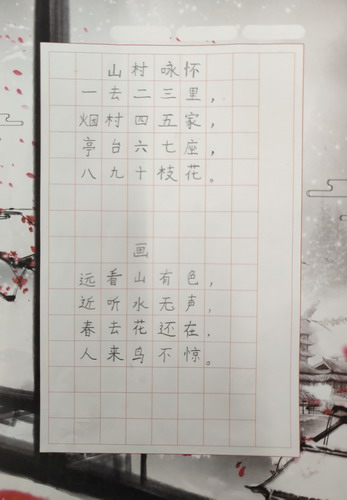 山村咏怀
一去二三里，
烟村四五家，
亭台六七座，
八九十枝花。
画
远看山有色，
近听水无声，
春去花还在．
人来鸟不惊。